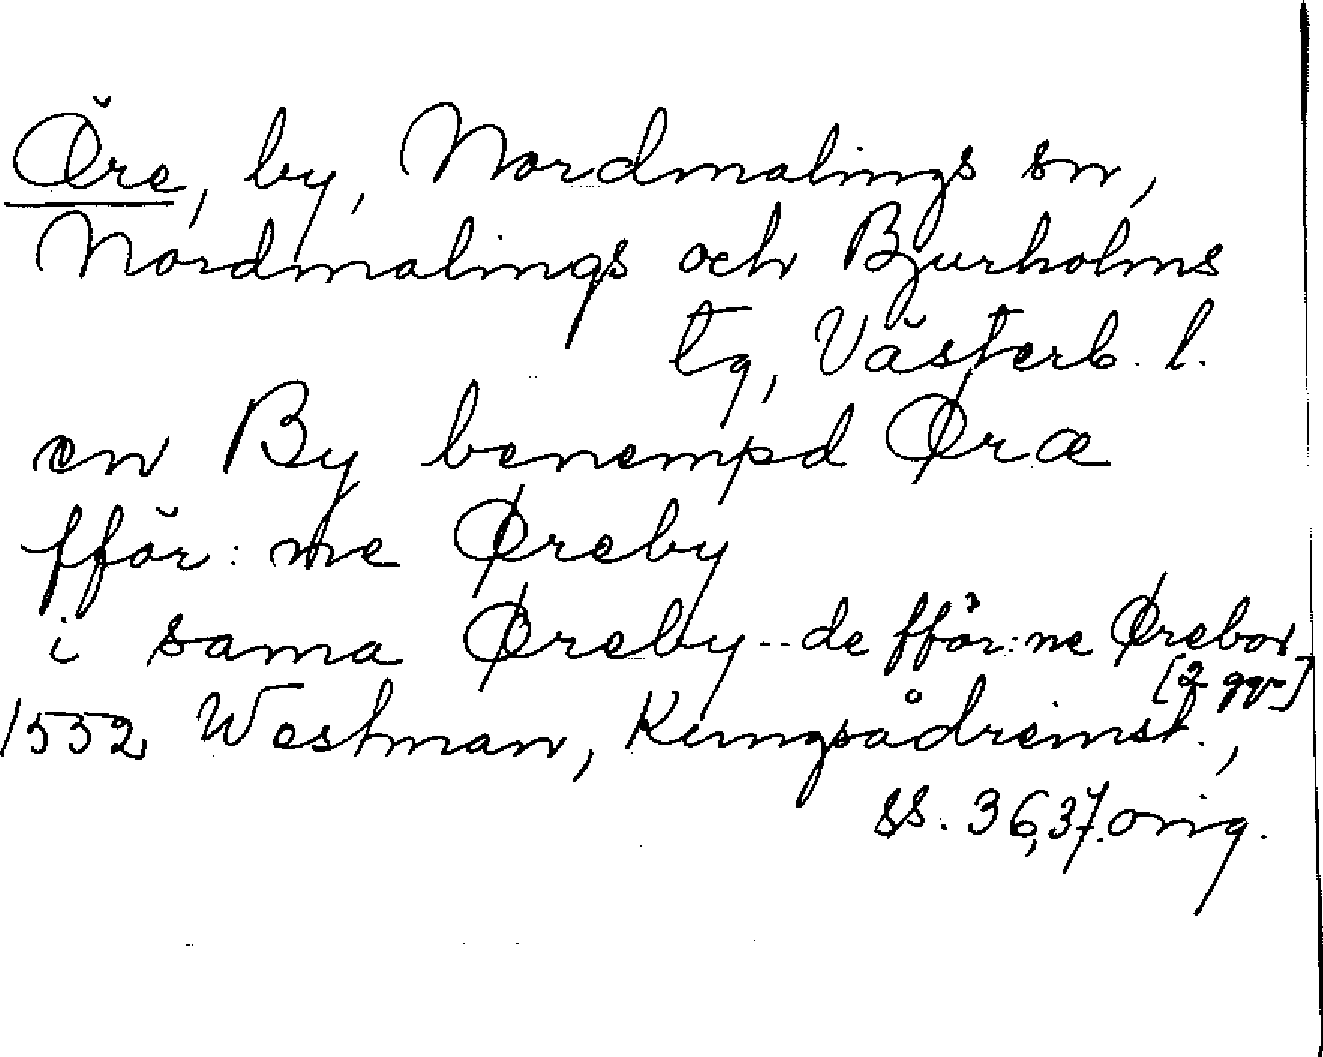 Öre, by, Nordmalings sn,
Nordmalings och Bjurholms
tg, Västerb. l.
en By benempd Øræ
fför: ne Øreby
i sama Øreby -- de fför: ne Ørebor
[2 ggr]
1552 Westman, Kungsådreinst.,
ss. 36, 37. orig.